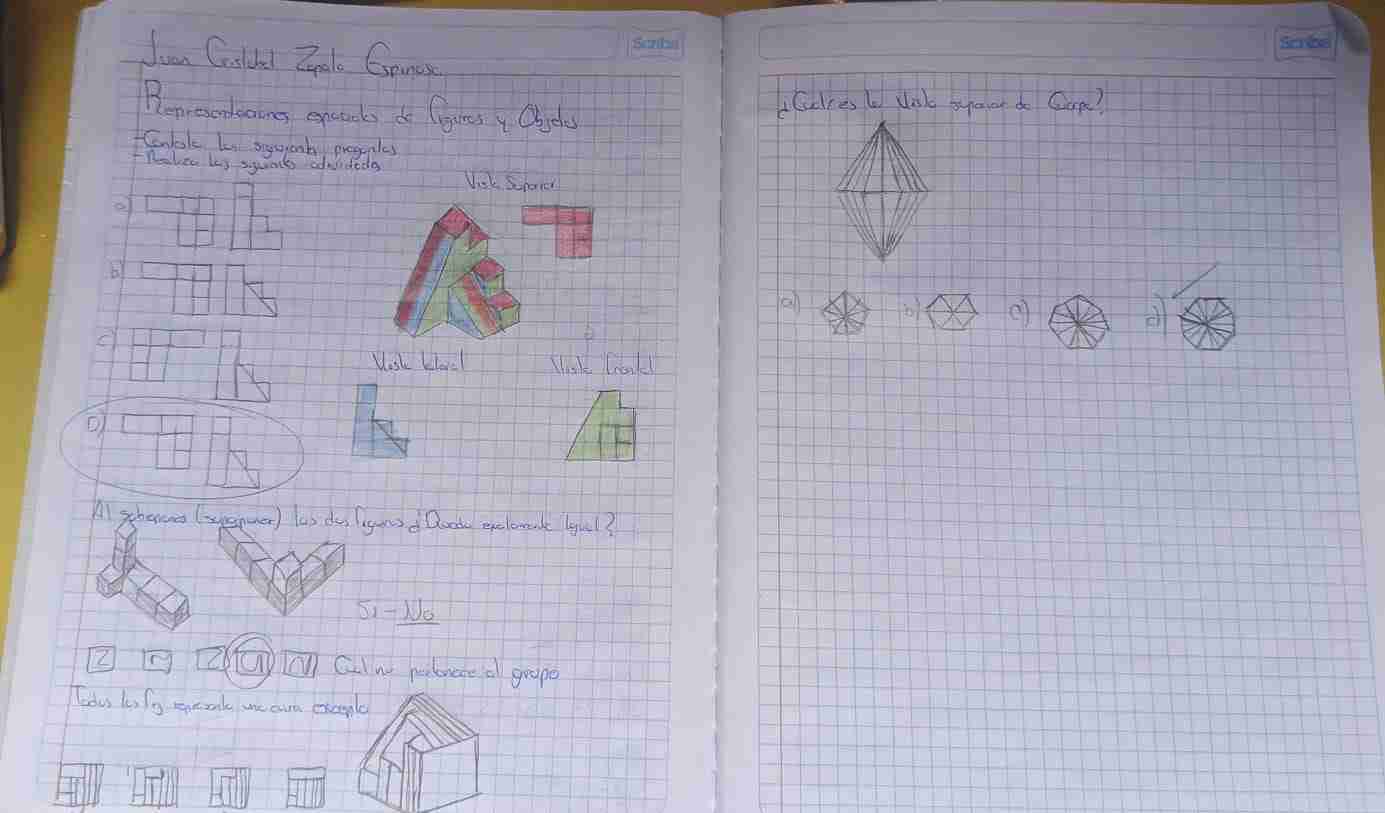 Scribe
Juan Cristobal Zapata Espinosa
Representaciones espaciales de figuras y Objetos
- Contesta las siguientes preguntas
- Realiza las siguients actividades
Vista Superior
a)
b)
c)
D)
Vista lateral
Vista Frontal
Al (superponer) las dos figuras ¿ Queda exactamente Igual?
Si - No
Cual no pertenece al grupo
Todas las fig representa una cara
Scribe
¿Cual es la Vista superior de Cuerpo?
a) b) c) d)